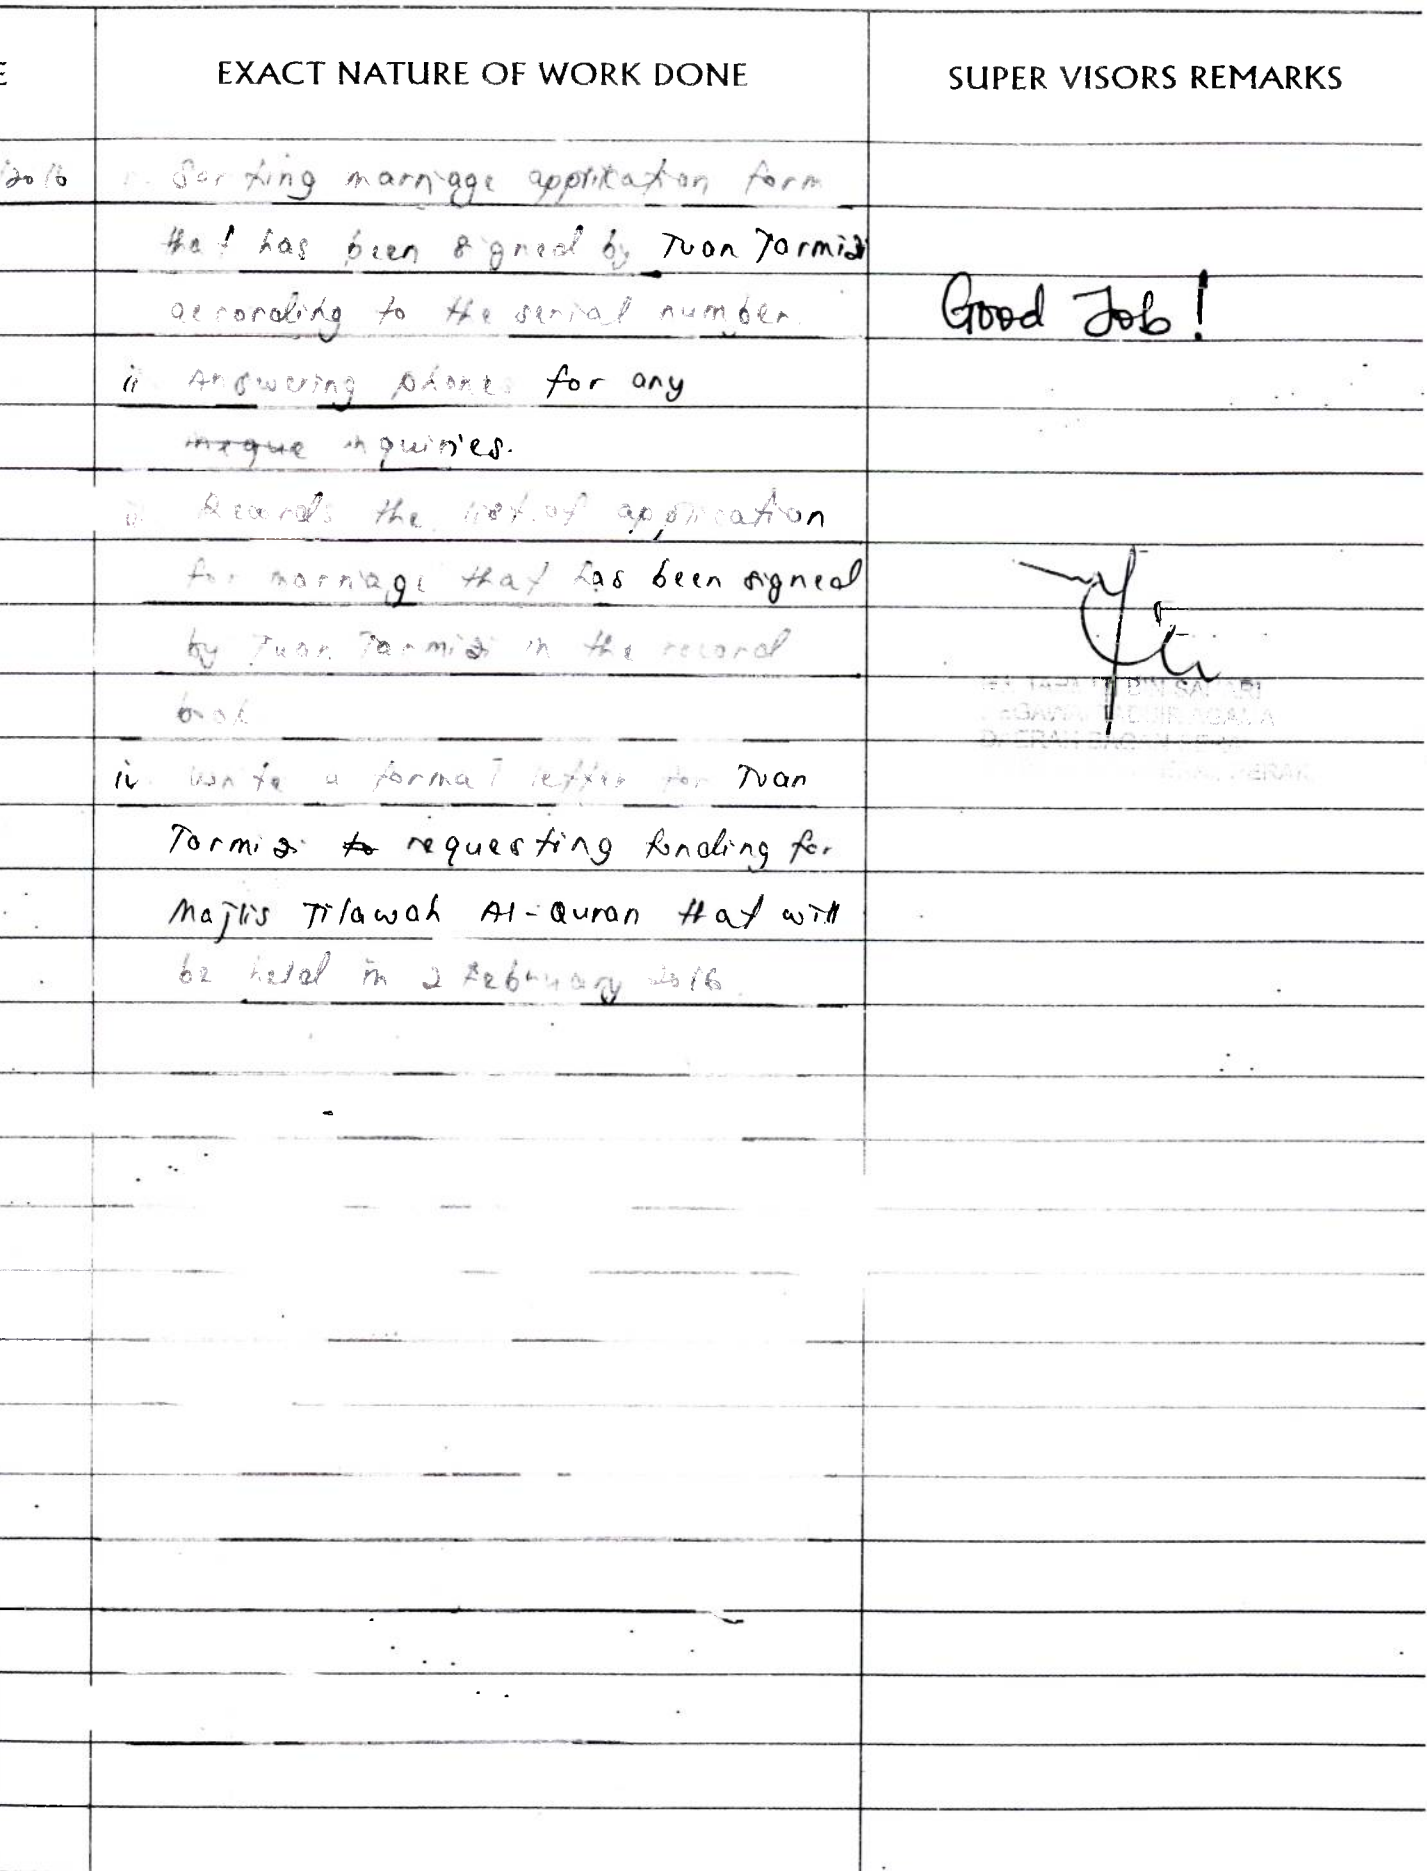 E
EXACT NATURE OF WORK DONE
SUPER VISORS REMARKS
2016
i. Sorting marriage application form
that has been signed by Tuan Tarmizi
according to the serial number.
Good Job!
ii Answering phones for any
inquiries.
Records the list of application
for marriage that has been signed
by Tuan Tarmizi in the record
book
iv Write a formal letter for Tuan
Tarmizi to requesting funding for
Majlis Tilawah Al-Quran that will
be held in 2 February 2016